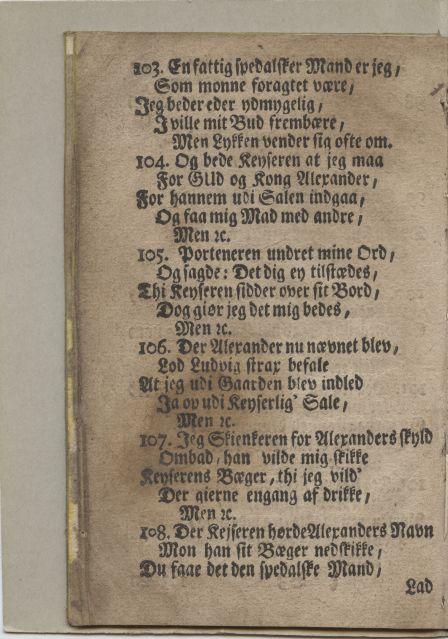 103. En fattig spedalsker Mand er jeg /
Som monne foragtet være /
Jeg beder eder ydmygelig /
I ville mit Bud frembære /
Men Lykken vender sig ofte om.
104. Og bede Keyseren at jeg maa
For GUd og Kong Alexander /
For hannem udi Salen indgaa /
Og faa mig Mad med andre /
Men ꝛc.
105. Porteneren undret mine Ord /
Og sagde: Det dig ey tilstædes /
Thi Keyseren sidder over sit Bord /
Dog giør jeg det mig bedes /
Men ꝛc.
106. Der Alexander nu nævnet blev /
Lod Ludvig strax befale
At jeg udi Gaarden blev indled
Ja op udi Keyserlig' Sale /
Men ꝛc.
107. Jeg Skienkeren for Alexanders skyld
Ombad / han vilde mig skikke
Keyserens Bæger / thi jeg vild'
Der gierne engang af drikke /
Men ꝛc.
108. Der Kejseren hørde Alexanders Navn
Mon han sit Bæger nedskikke /
Du faae det den spedalske Mand /
Lad